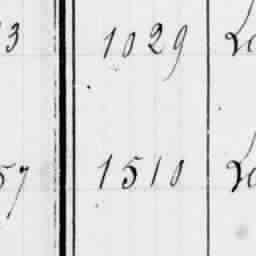 3 1029
57 1510